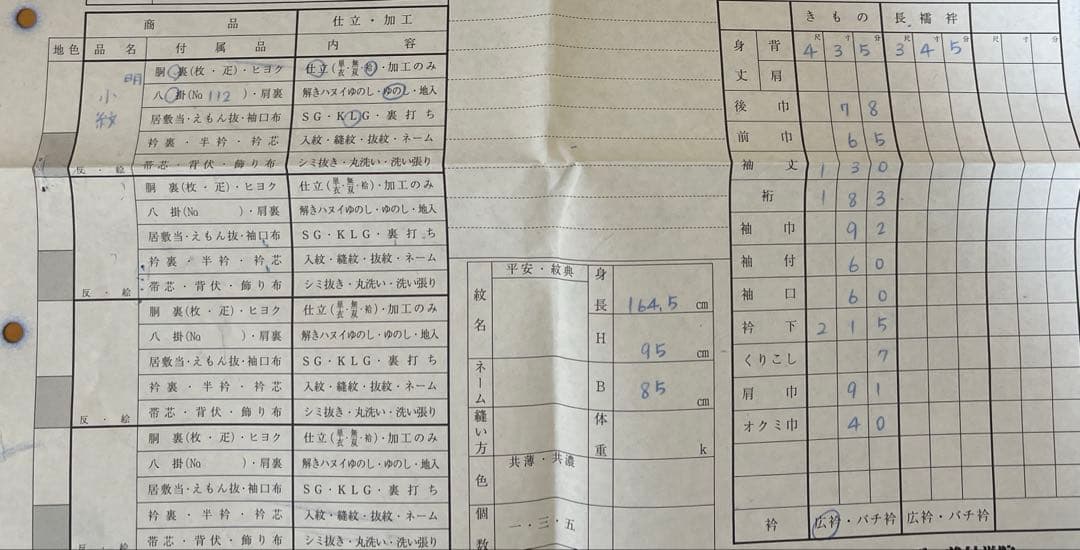 商品 仕立・加工
地色 品名 付属品 内容
小紋
明
胴裏(枚・疋)・ヒヨク 仕立(単衣・無双・袷)・加工のみ
八掛(No 112)・肩裏 解きハヌイゆのし・ゆのし・地入
居敷当・えもん抜・袖口布 SG・KLG・裏打ち
衿裏・半衿・衿芯 入紋・縫紋・抜紋・ネーム
反・絵 帯芯・背伏・飾り布 シミ抜き・丸洗い・洗い張り
胴裏(枚・疋)・ヒヨク 仕立(単衣・無双・袷)・加工のみ
八掛(No )・肩裏 解きハヌイゆのし・ゆのし・地入
居敷当・えもん抜・袖口布 SG・KLG・裏打ち
衿裏・半衿・衿芯 入紋・縫紋・抜紋・ネーム
反・絵 帯芯・背伏・飾り布 シミ抜き・丸洗い・洗い張り
胴裏(枚・疋)・ヒヨク 仕立(単衣・無双・袷)・加工のみ
八掛(No )・肩裏 解きハヌイゆのし・ゆのし・地入
居敷当・えもん抜・袖口布 SG・KLG・裏打ち
衿裏・半衿・衿芯 入紋・縫紋・抜紋・ネーム
反・絵 帯芯・背伏・飾り布 シミ抜き・丸洗い・洗い張り
胴裏(枚・疋)・ヒヨク 仕立(単衣・無双・袷)・加工のみ
八掛(No )・肩裏 解きハヌイゆのし・ゆのし・地入
居敷当・えもん抜・袖口布 SG・KLG・裏打ち
衿裏・半衿・衿芯 入紋・縫紋・抜紋・ネーム
帯芯・背伏・飾り布 シミ抜き・丸洗い・洗い張り
紋名 平安・紋典
ネーム
縫い方
色 共薄・共濃
個数 一・三・五
身長 164.5 cm
H 95 cm
B 85 cm
体重 k
きもの 長襦袢
尺 寸 分 尺 寸 分 尺 寸 分
身丈 背 4 3 5 3 4 5
肩
後巾 7 8
前巾 6 5
袖丈 1 3 0
裄 1 8 3
袖巾 9 2
袖付 6 0
袖口 6 0
衿下 2 1 5
くりこし 7
肩巾 9 1
オクミ巾 4 0
衿 広衿・バチ衿 広衿・バチ衿